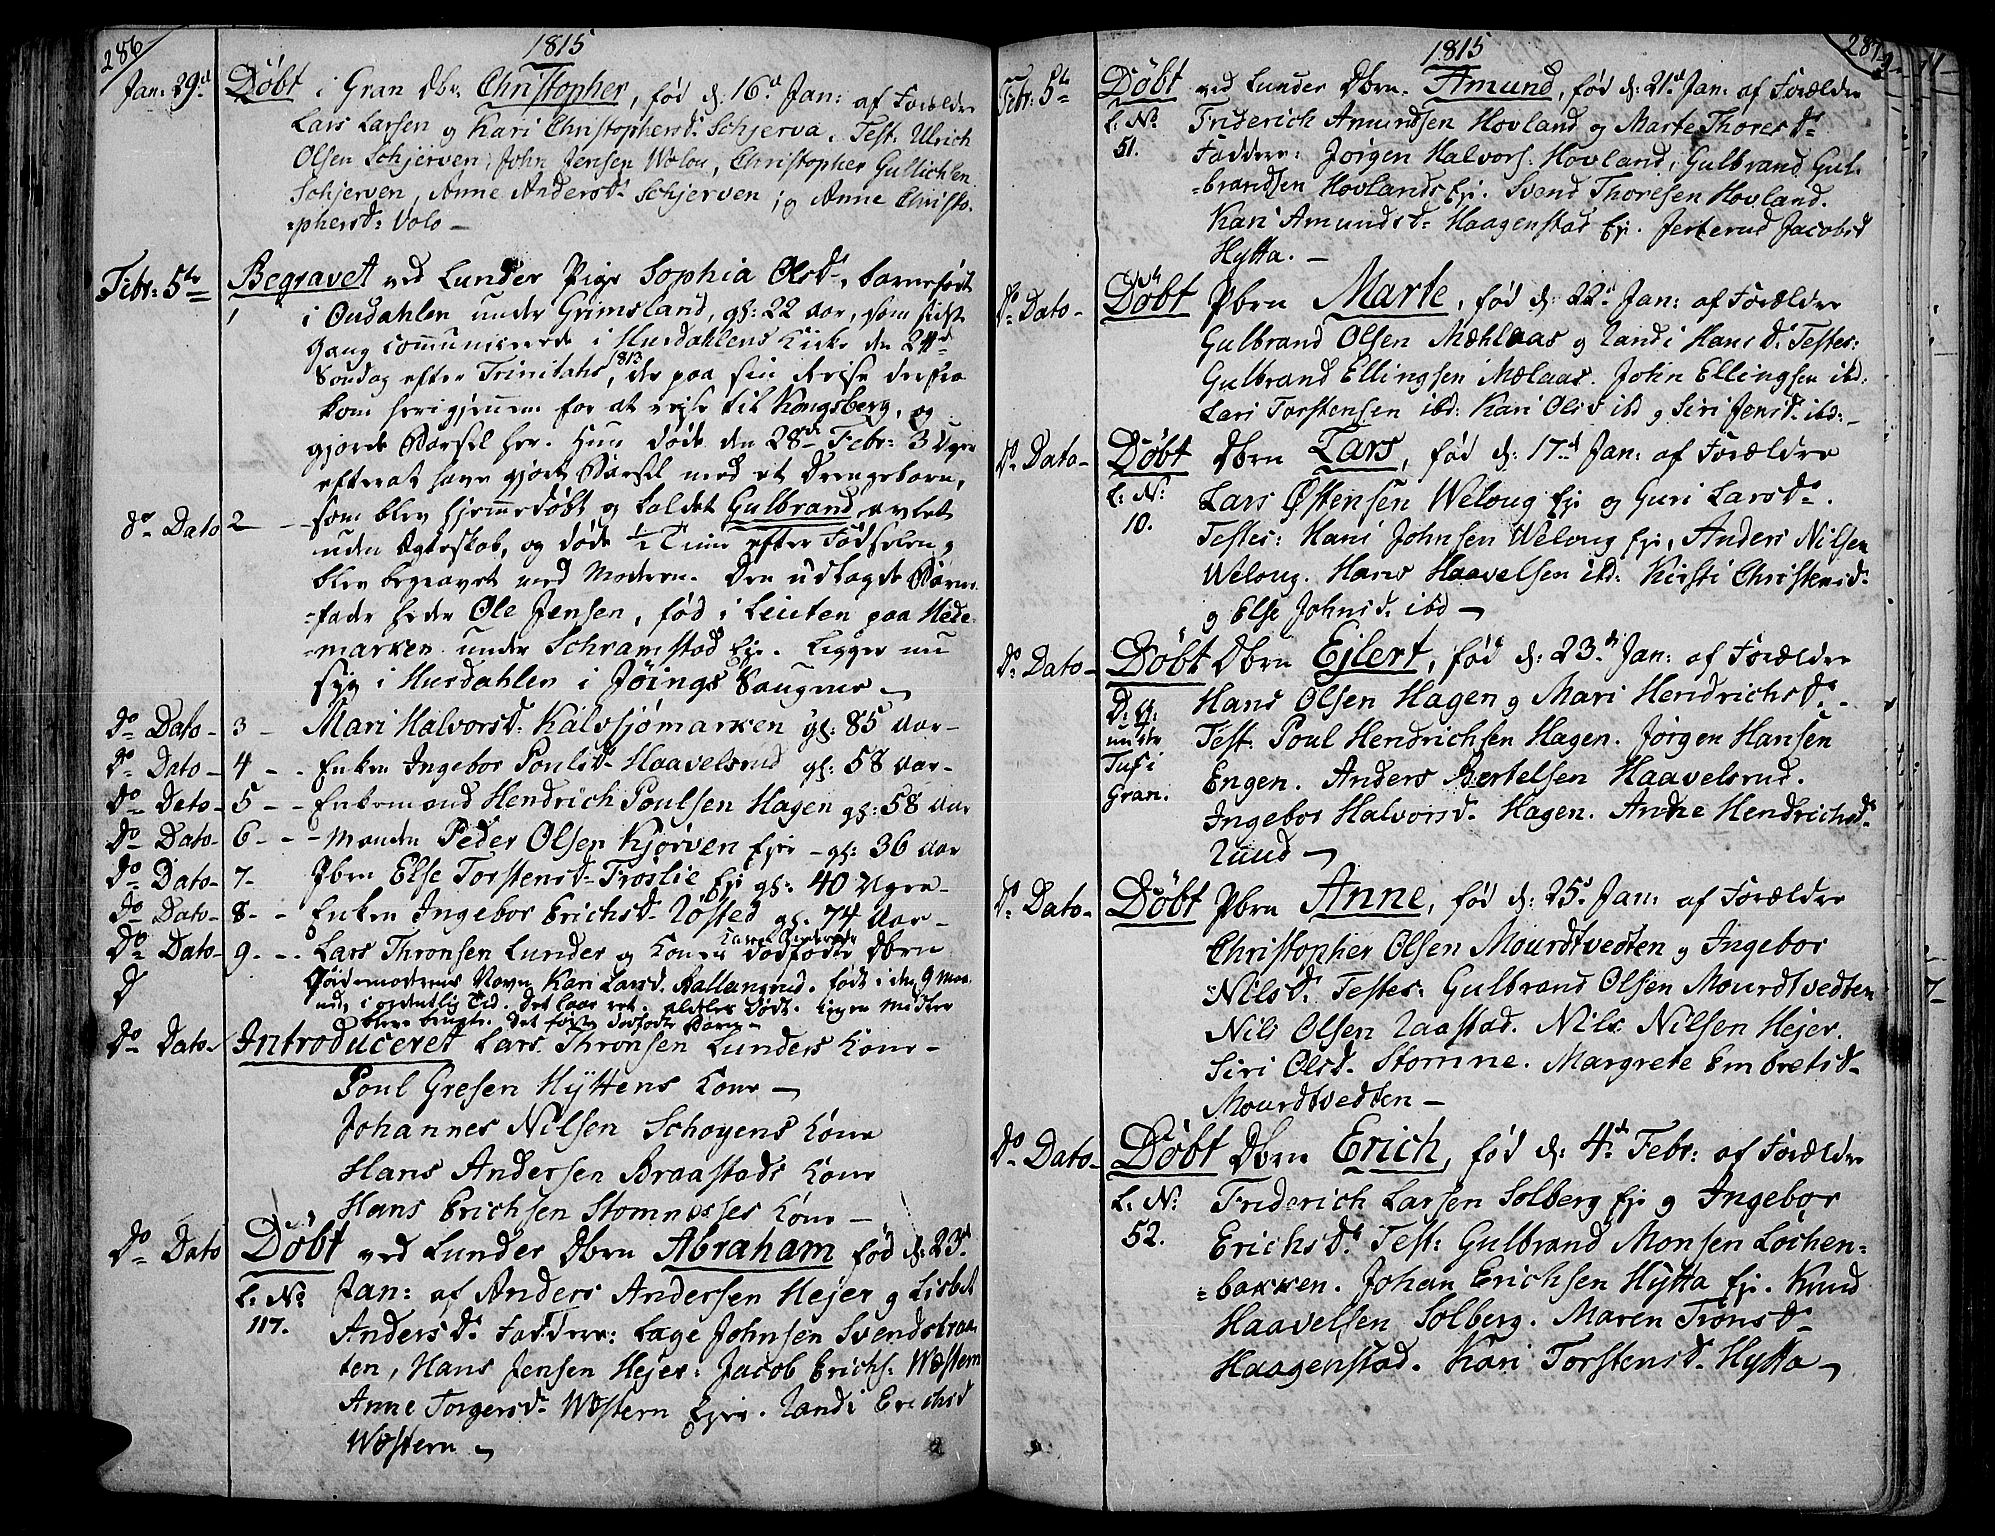 286
1815
Jan: 29d Döbt i Gran Dbr: Christopher, fød d: 16d Jan: af Forældre
Lars Larsen og Kari Christophersd: Schjerva. Test: Ulrich
Olsen Schjerven, John Jensen Woloe, Christopher Gullichsen
Schjerven, Anne Andersd: Schjerven; og Anne Christo-
=phersd: Volo –
Febr: 5te Begravet ved Lunder Pige Sophia Olsd:, barnefødt
1 i Oudahlen under Grimsland, gl: 22 Aar, som sidste
Gang communicerede i Hurdahlens Kirke den 24de
Søndag efter Trinitatis, 1813 der paa sin Reise derfra
kom herigjennem for at rejse til Kongsberg, og
gjorde Barsel her. Hun døde den 28de Febr: 3 Uger
efterat have gjort Barsel med et Drengebarn,
do Dato 2 – som blev hjemmedøbt og kaldet Gulbrand avlet
uden Ægteskab, og døde ½ Time efter Fødselen og
blev begravet med Moderen. Den udlagde Barne-
=fader heder Ole Jensen, fød i Leuten paa Hede-
=marken under Schramstad Eje. Ligger nu
syg i Hurdahlen i Jöings Saugner –
Do Dato – 3 – Mari Halvorsd: Kalvsjömarken gl: 85 Aar –
Do Dato – 4 – – Enken Ingebor Poulsd: Haavelsrud gl: 58 Aar –
Do Dato – 5 – – Enkemand Hendrich Poulsen Hagen gl: 58 Aar
Do Dato – 6 – – Manden Peder Olsen Kjörven Ejer – gl: 36 Aar
Do Dato – 7 – Pbrn Else Torstensd: Froslie Ej gl: 40 Uger –
Do Dato – 8 – – Enken Ingebor Erichsd: Lösted gl: 74 Aar –
Do Dato – 9 – – Lars Thronsen Lunder og Konen dødfødte Dbrn
Jordemoderens Navn Kari Larsd: . født i den 9 Maa-
ned, i ordentlig Tid. Det laae ret. aldeles dødt. Ingen Midler
bleve brugte. Det første dødfødte Barn –
Do Dato – Introduceret Lars Thronsen Lunders Kone –
Poul Gresen Hyttens Kone –
Johannes Nilsen Schoyens Kone
Hans Andersen Braastads Kone
Hans Erichsen Stomneses Kone –
Do Dato Döbt ved Lunder Dbrn Abraham fød d: 23d
L: No Jan: af Anders Andersen Hejer og Lisbet
117. Andersd: Faddere: Lage Johnsen Svendstraa-
ten, Hans Jensen Hejer: Jacob Erichs: Wæstern
Anne Torgersd: Wæstern Ejer. Randi Erichsd
Wæstern –
287
1815
Febr: 5te Döbt ved Lunder Dbrn. Amund, fød d: 21d Jan: af Forældre
L: No Friderich Amundsen Hovland og Marte Thoresd:
51. Faddere: Jörgen Halvors: Hovland, Gulbrand Gul-
=brandsen Hovlands Ej. Svend Thoresen Hovland.
Kari Amundsd: Haagenstad Ej. Jacobsd
Hytta. –
Do Dato – Döbt Pbrn Marte, fød d: 22d Jan: af Forældre
Gulbrand Olsen Mæhlaas og Randi Hansd: Testes:
Gulbrand Ellingsen Mælaas. John Ellingsen ibd:
Lars Torstensen ibd: Kari Olsd ibd og Siri Jensd: ibd: –
Do Dato – Döbt Dbrn Lars, fød d: 17d Jan: af Forældre
L: No: Lars Østensen Weloug Ej og Guri Larsd:.
10. Testes: Hans Johnsen Weloug Ej, Anders Nilsen
Weloug. Hans Haavelsen ibd: Kirsti Christensd:
og Else Johnsd: ibd –
Do Dato – Döbt Dbrn Ejlert, fød d: 23d Jan: af Forældre
Hans Olsen Hagen og Mari Hendrichsd:.
D: G: under Tuf i Gran. Test: Poul Hendrichsen Hagen. Jörgen Hansen
Engen. Anders Bertelsen Haavelsrud.
Ingebor Halvorsd: Hagen. Anne Hendrichsd:
Ruud –
Do Dato – Döbt Pbrn Anne, fød d: 25d Jan: af Forældre
Christopher Olsen Mourdtvedten og Ingebor
Nilsd: Testes: Gulbrand Olsen Mourdtvedten
Nils Olsen Raastad. Nils Nilsen Hejer.
Siri Olsd: Stomne. Margrete Embretsd:
Mourdtvedten –
Do Dato – Döbt Dbrn Erich, fød d: 4de Febr: af Forældre
L: No: Friderich Larsen Solberg Ej og Ingebor
52. Erichsd: Test: Gulbrand Monsen Lochen-
=bakken. Johan Erichsen Hytta Ej. Knud
Haavelsen Solberg. Maren Tronsd:
Haagenstad. Kari Torstensd: Hytta –